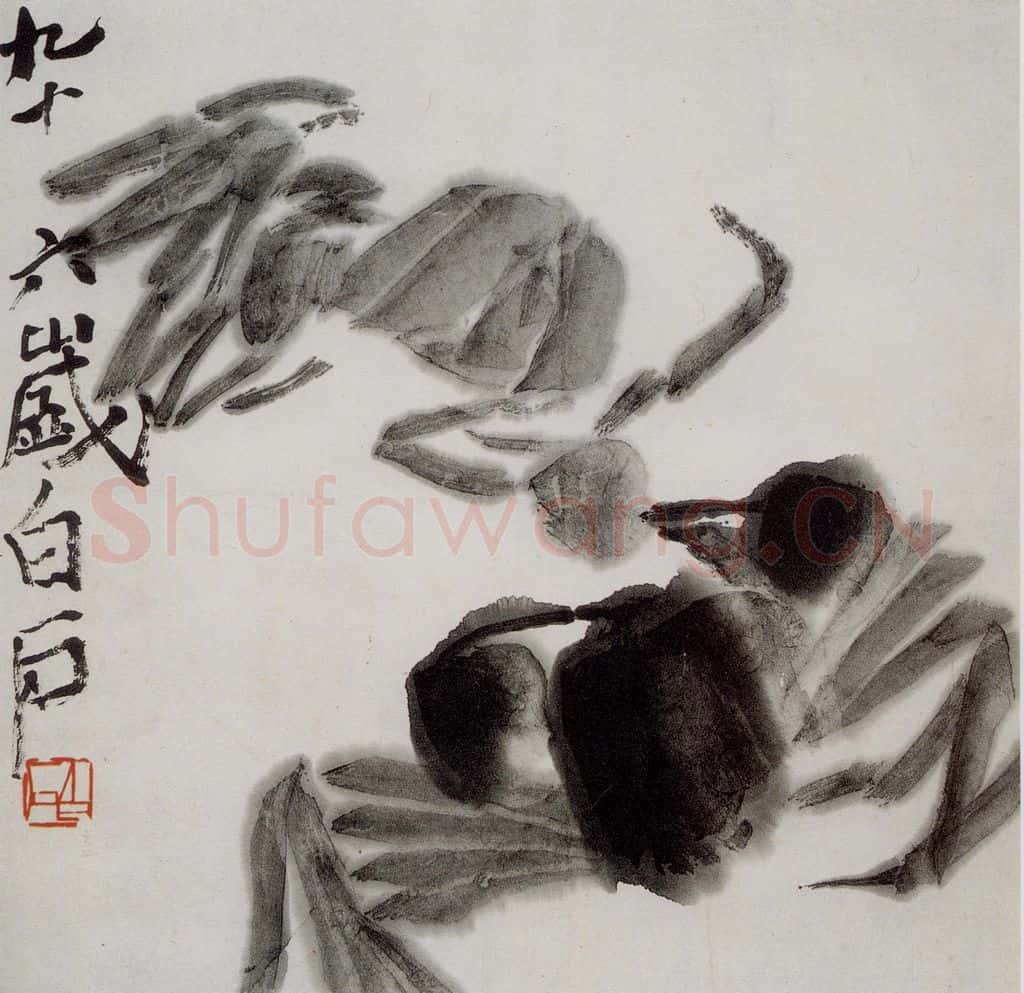 九十六岁白石
Shufawang.CN